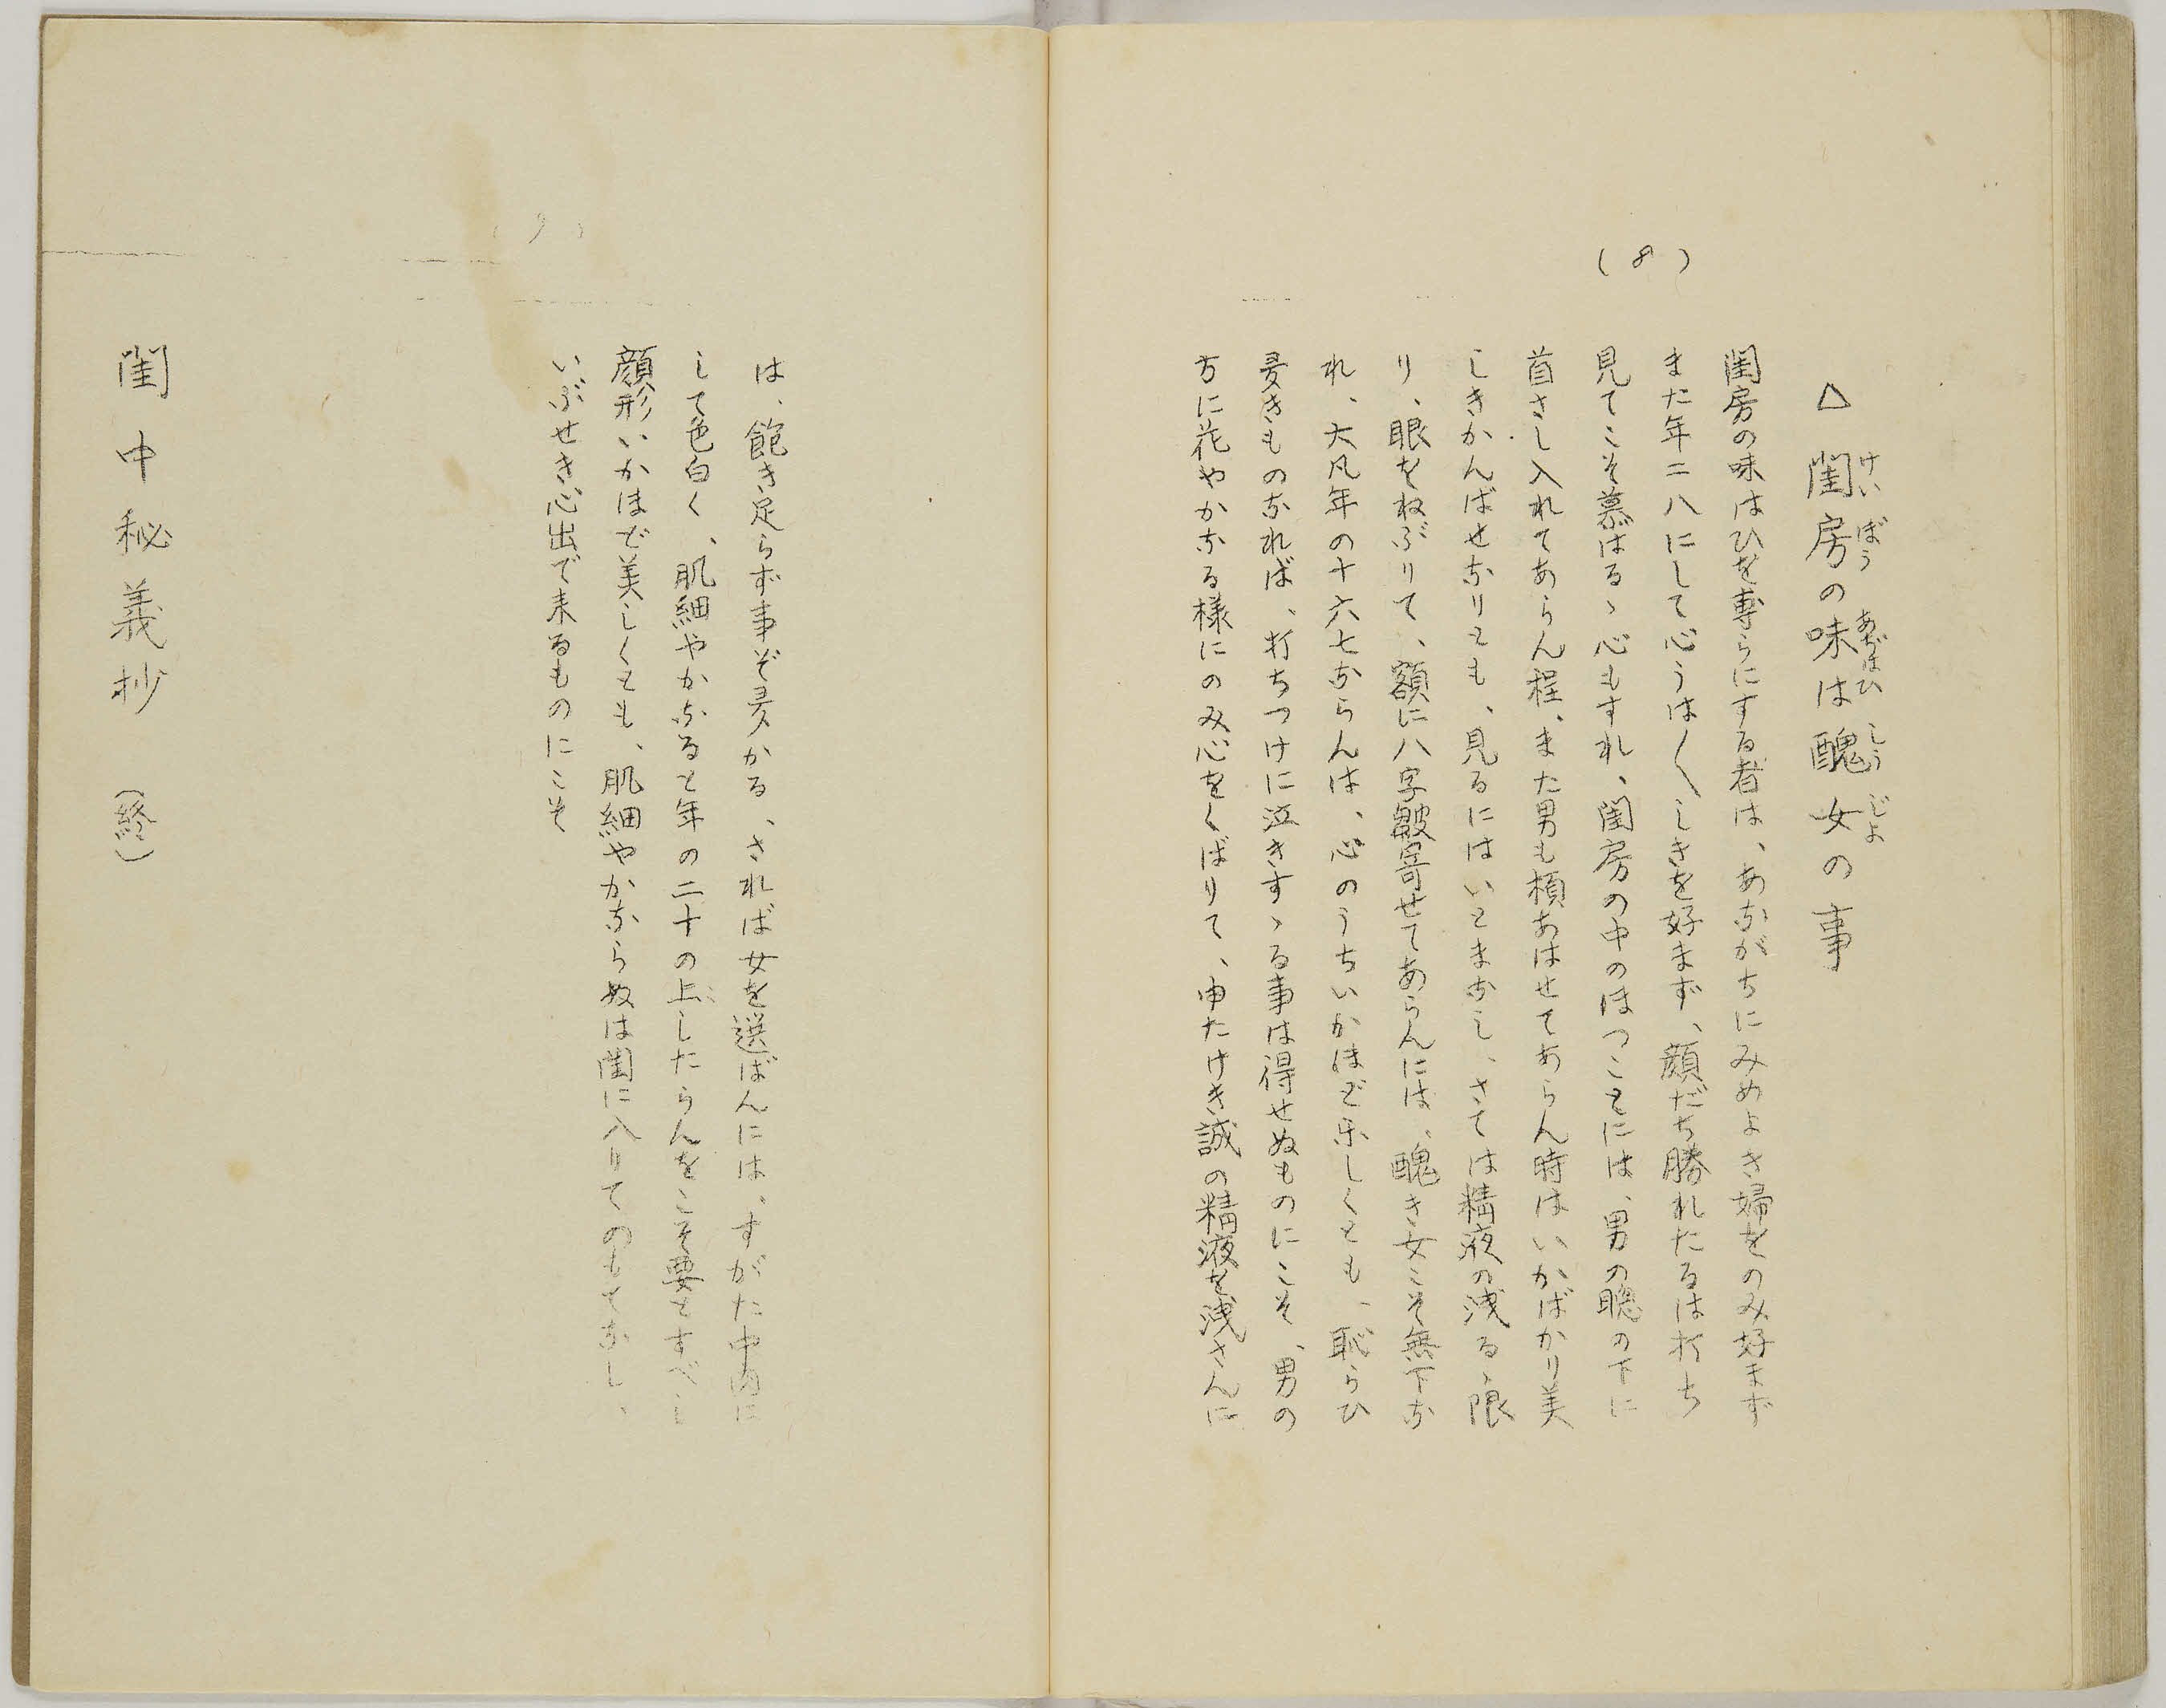 (8)
△閨房の味は醜女の事
けいばう あぢはひ しうじよ
閨房の味はひを専らにする者は、あながちにみめよき婦をのみ好まず
また年二八にして心うは〱しきを好まず、顔だち勝れたるは打ち
見てこそ慕はるゝ心もすれ、閨房の中のほつことには、男の聰の下に
首さし入れてあらん程、また男も槓あはせてあらん時はいかばかり美
しきかんばせなりとも、見るにはいとまなし、さては精液の洩るゝ限
り、眼をねぶりて、額に八字皺寄せてあらんには、醜き女こそ無下な
れ、大凡年の十六七ならんは、心のうちいかほど楽しくとも、恥らひ
多きものなれば、打ちつけに泣きすゝる事は得せぬものにこそ、男の
方に花やかなる様にのみ心をくばりて、申たけき誠の精液を洩さんに
(9)
は、飽き足らず事ぞ多かる、されば女を選ばんには、すがた中肉に
して色白く、肌細やかなると年の二十の上したらんをこそ要とすべし
顔形いかほど美しくとも、肌細やかならぬは閨に入りてのもてなし、
いぶせき心出で来るものにこそ
閨中秘義抄 (終)